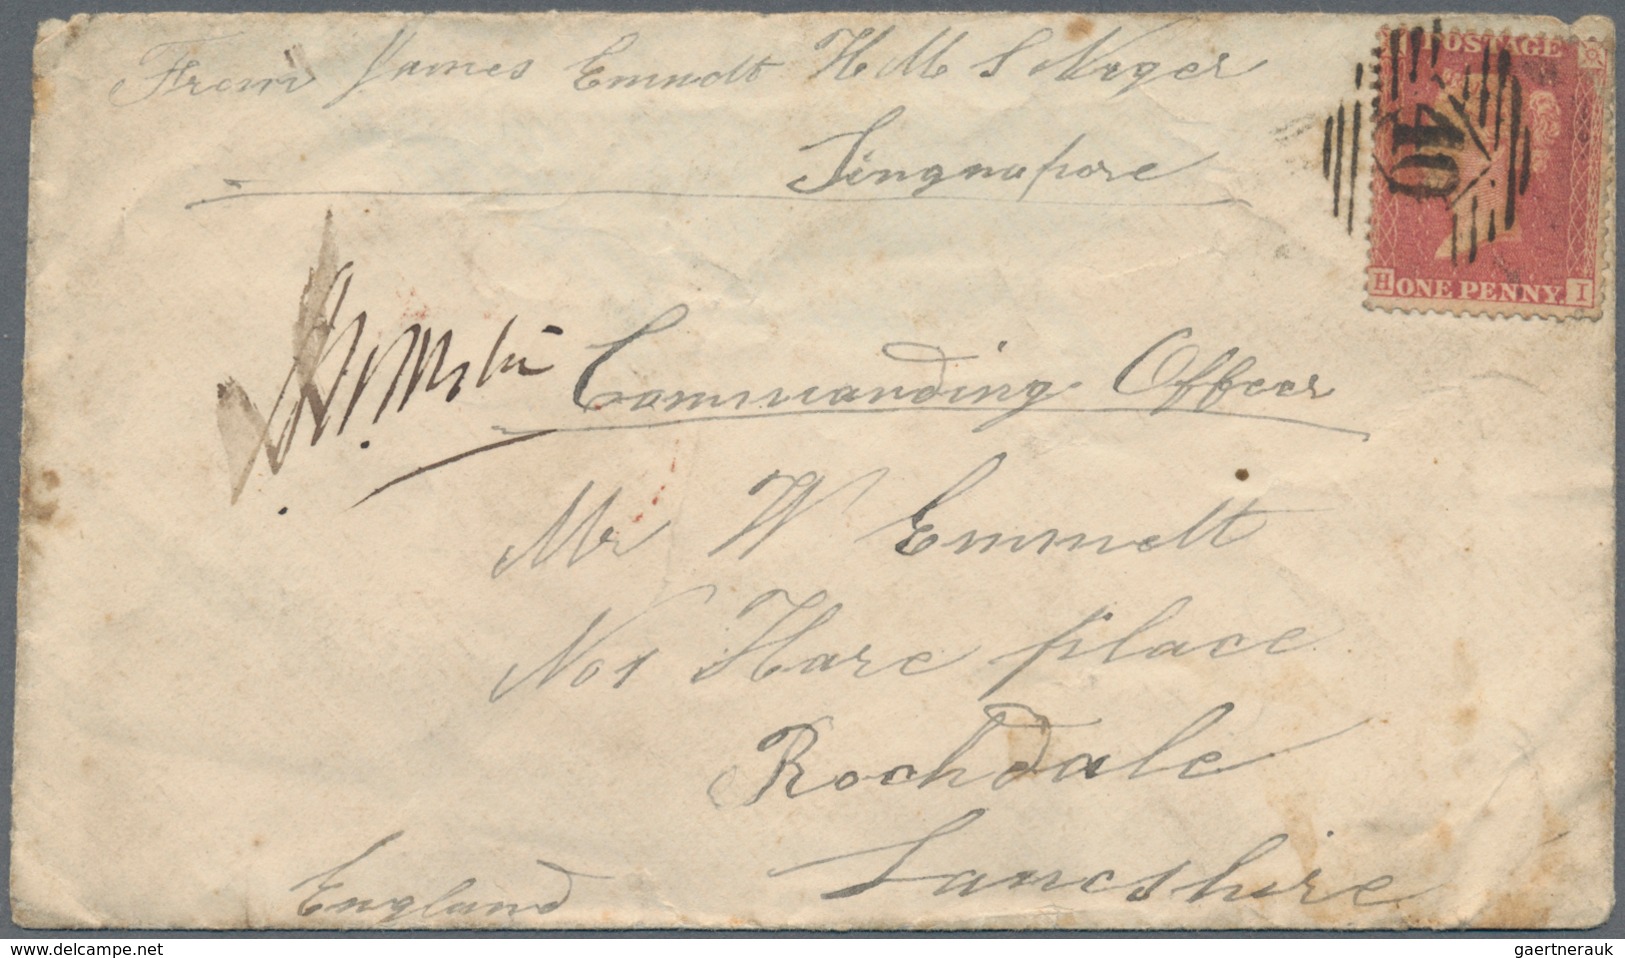 From James Emmott H M S Niger
Singnapore
POSTAGE
40
H ONE PENNY. I
Commanding Officer
Mr W Emmott
No 1 Hare place
Rochdale
Lancshire
England
www.delcampe.net
gaertnerauk